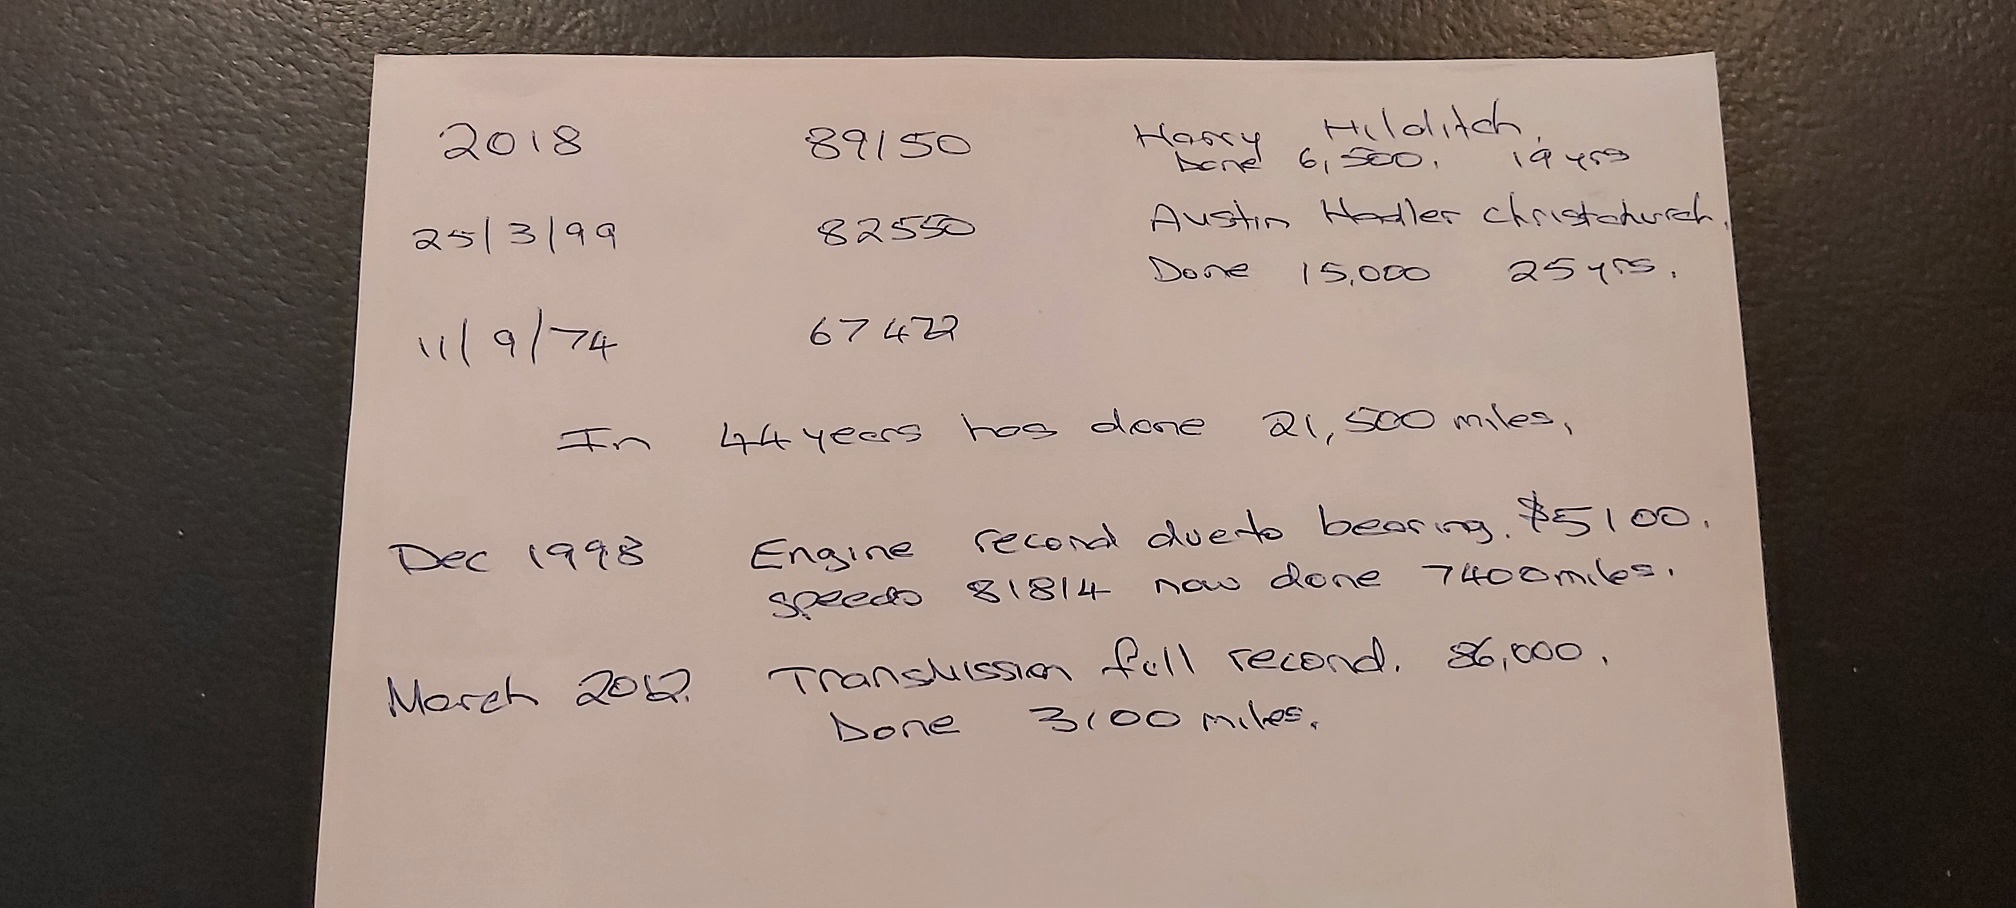 2018 89150 Harry Hilditch,
Done 6,500. 19 yrs
25/3/99 82550 Austin Hadler Christchurch.
Done 15,000 25 yrs.
11/9/74 67422
In 44 years has done 21,500 miles,
Dec 1998 Engine recond due to bearing. $5100.
speedo 81814 now done 7400 miles.
March 2012. Transmission full recond. 86,000.
Done 3100 miles.